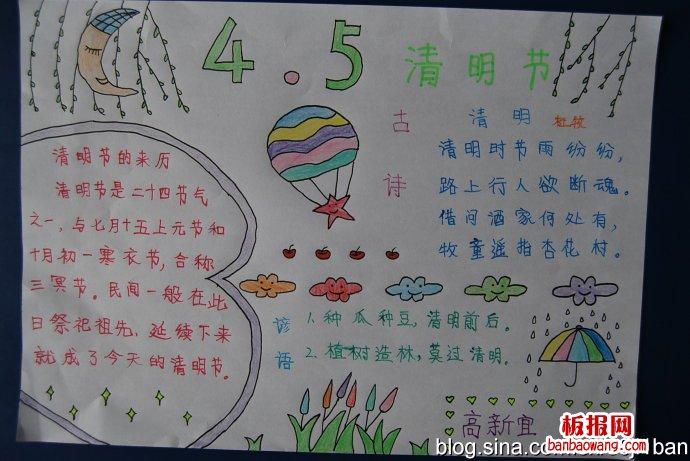 4.5 清明节
清明节的来历
清明节是二十四节气
之一，与七月十五上元节和
十月初一寒衣节，合称
三冥节。民间一般在此
日祭祀祖先，延续下来
就成了今天的清明节。
古诗
清明 杜牧
清明时节雨纷纷，
路上行人欲断魂。
借问酒家何处有，
牧童遥指杏花村。
谚语
1.种瓜种豆，清明前后。
2.植树造林，莫过清明。
高新宜
板报网
banbaowang.com
blog.sina.com
ban